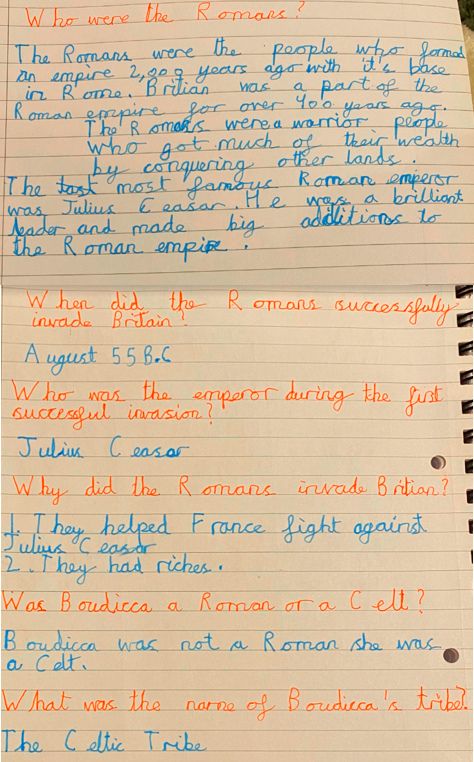 Who were the Romans?
The Romans were the people who formed
an empire 2,000 years ago with it's base
in Rome. Britian was a part of the
Roman empire for over 400 years ago.
The Romans were a warrior people
who got much of their wealth
by conquering other lands.
The most famous Roman emperor
was Julius Ceasar. He was a brilliant
leader and made big additions to
the Roman empire.
When did the Romans successfully
invade Britain?
August 55B.C
Who was the emperor during the first
successful invasion?
Julius Ceasar
Why did the Romans invade Britian?
1. They helped France fight against
Julius Ceasar
2. They had riches.
Was Boudicca a Roman or a Celt?
Boudicca was not a Roman she was
a Celt.
What was the name of Boudicca's tribe?
The Celtic Tribe